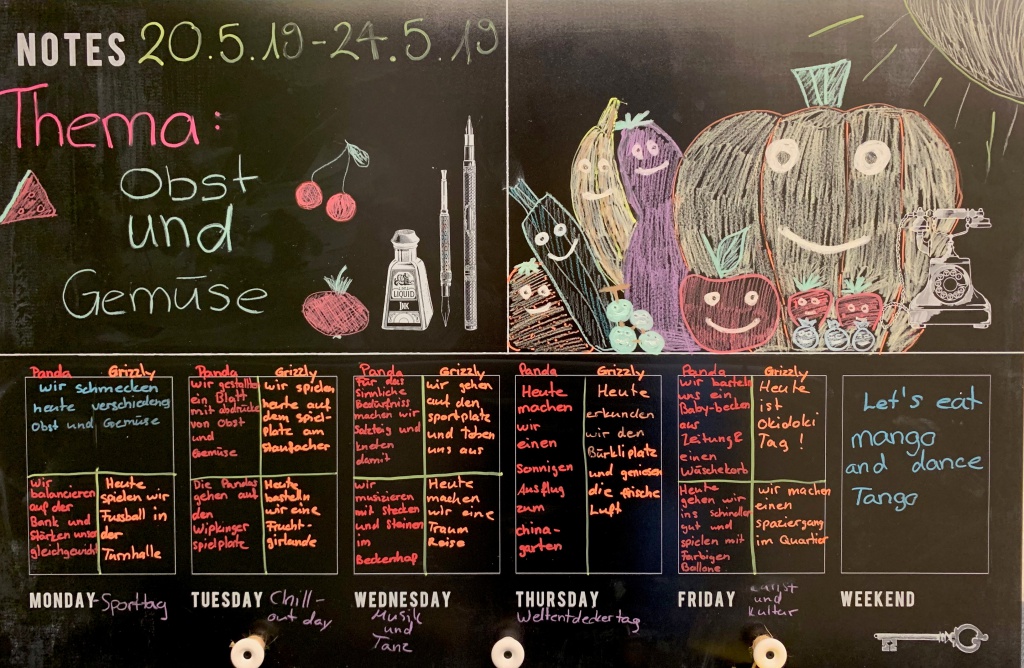 NOTES 20.5.19-24.5.19
Thema:
Obst
und
Gemüse
LIQUID
INK
Panda
Grizzly
wir schmecken
heute verschiedene
Obst und Gemüse
wir
balancieren
auf der
Bank und
Stärken unser
gleichgewicht
Heute
spielen wir
Fussball in
der
Turnhalle
MONDAY-Sporttag
Panda
Grizzly
wir gestalten
ein Blatt
mit abdrücke
von Obst
und
Gemüse
wir spielen
heute auf
dem spiel-
platz am
stauffacher
Die Pandas
gehen auf
den
Wipkinger
spielplatz
Heute
basteln
wir eine
Frucht-
girlande
TUESDAY Chill-
out day
Panda
Grizzly
Für das
Sinnliche
machen wir
Salzteig und
kneten
damit
wir gehen
auf den
sportplatz
und toben
uns aus
wir
musizieren
mit Stecken
und Steinen
im
Beckenhof
Heute
machen
wir eine
Traum
Reise
WEDNESDAY
Musik
und
Tanz
Panda
Grizzly
Heute
machen
wir
einen
Sonnigen
Ausflug
zum
china-
garten
Heute
erkunden
wir den
Bürkliplatz
und geniessen
die frische
Luft
THURSDAY
Weltentdeckertag
Panda
Grizzly
wir basteln
uns ein
Baby-becken
aus
Zeitung &
einen
Wäschekorb
Heute
ist
Okidoki
Tag !
Heute
gehen wir
ins Schindler
gut und
spielen mit
Farbigen
Ballone
wir machen
einen
spaziergang
im Quartier
FRIDAY
kunst
und
kultur
Let's eat
mango
and dance
Tango
WEEKEND